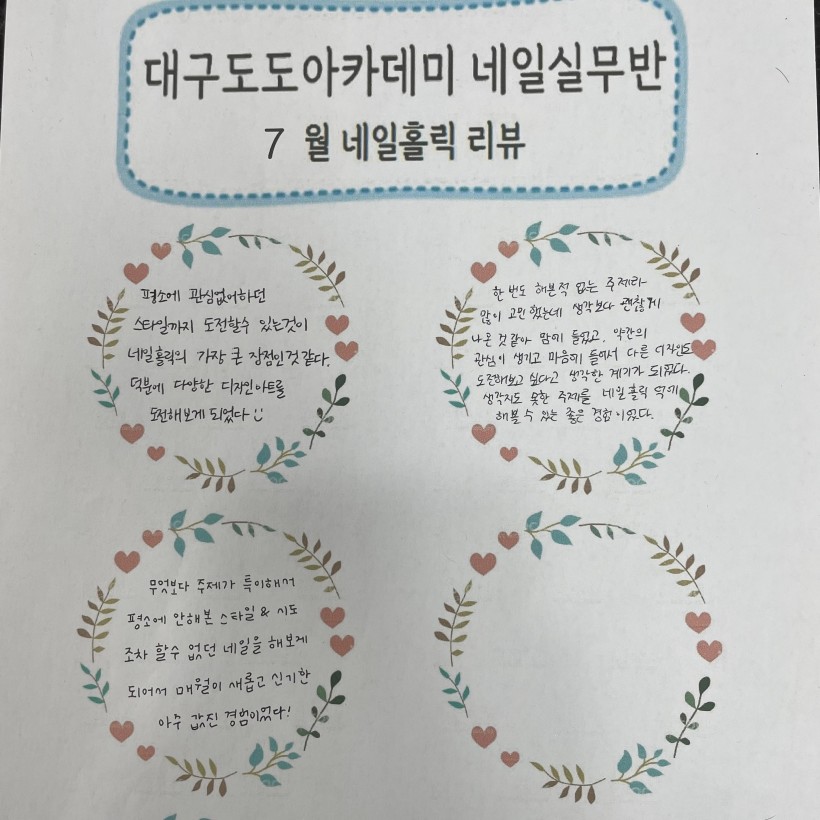 대구도도아카데미 네일실무반
7 월 네일홀릭 리뷰
평소에 관심없어하던
스타일까지 도전할수 있는것이
네일홀릭의 가장 큰 장점인것 같다.
덕분에 다양한 디자인아트를
도전해보게 되었다
한 번도 해본적 없는 주제라
많이 고민했는데 생각보다 괜찮게
나온 것 같아 맘에 들었고, 약간의
관심이 생기고 마음에 들어서 다른 디자인도
도전해보고 싶다고 생각한 계기가 되었다.
생각지도 못한 주제를 네일홀릭 덕에
해볼 수 있는 좋은 경험이었다.
무엇보다 주제가 특이해서
평소에 안해본 스타일 & 시도
조차 할수 없던 네일을 해보게
되어서 매월이 새롭고 신기한
아주 값진 경험이었다!